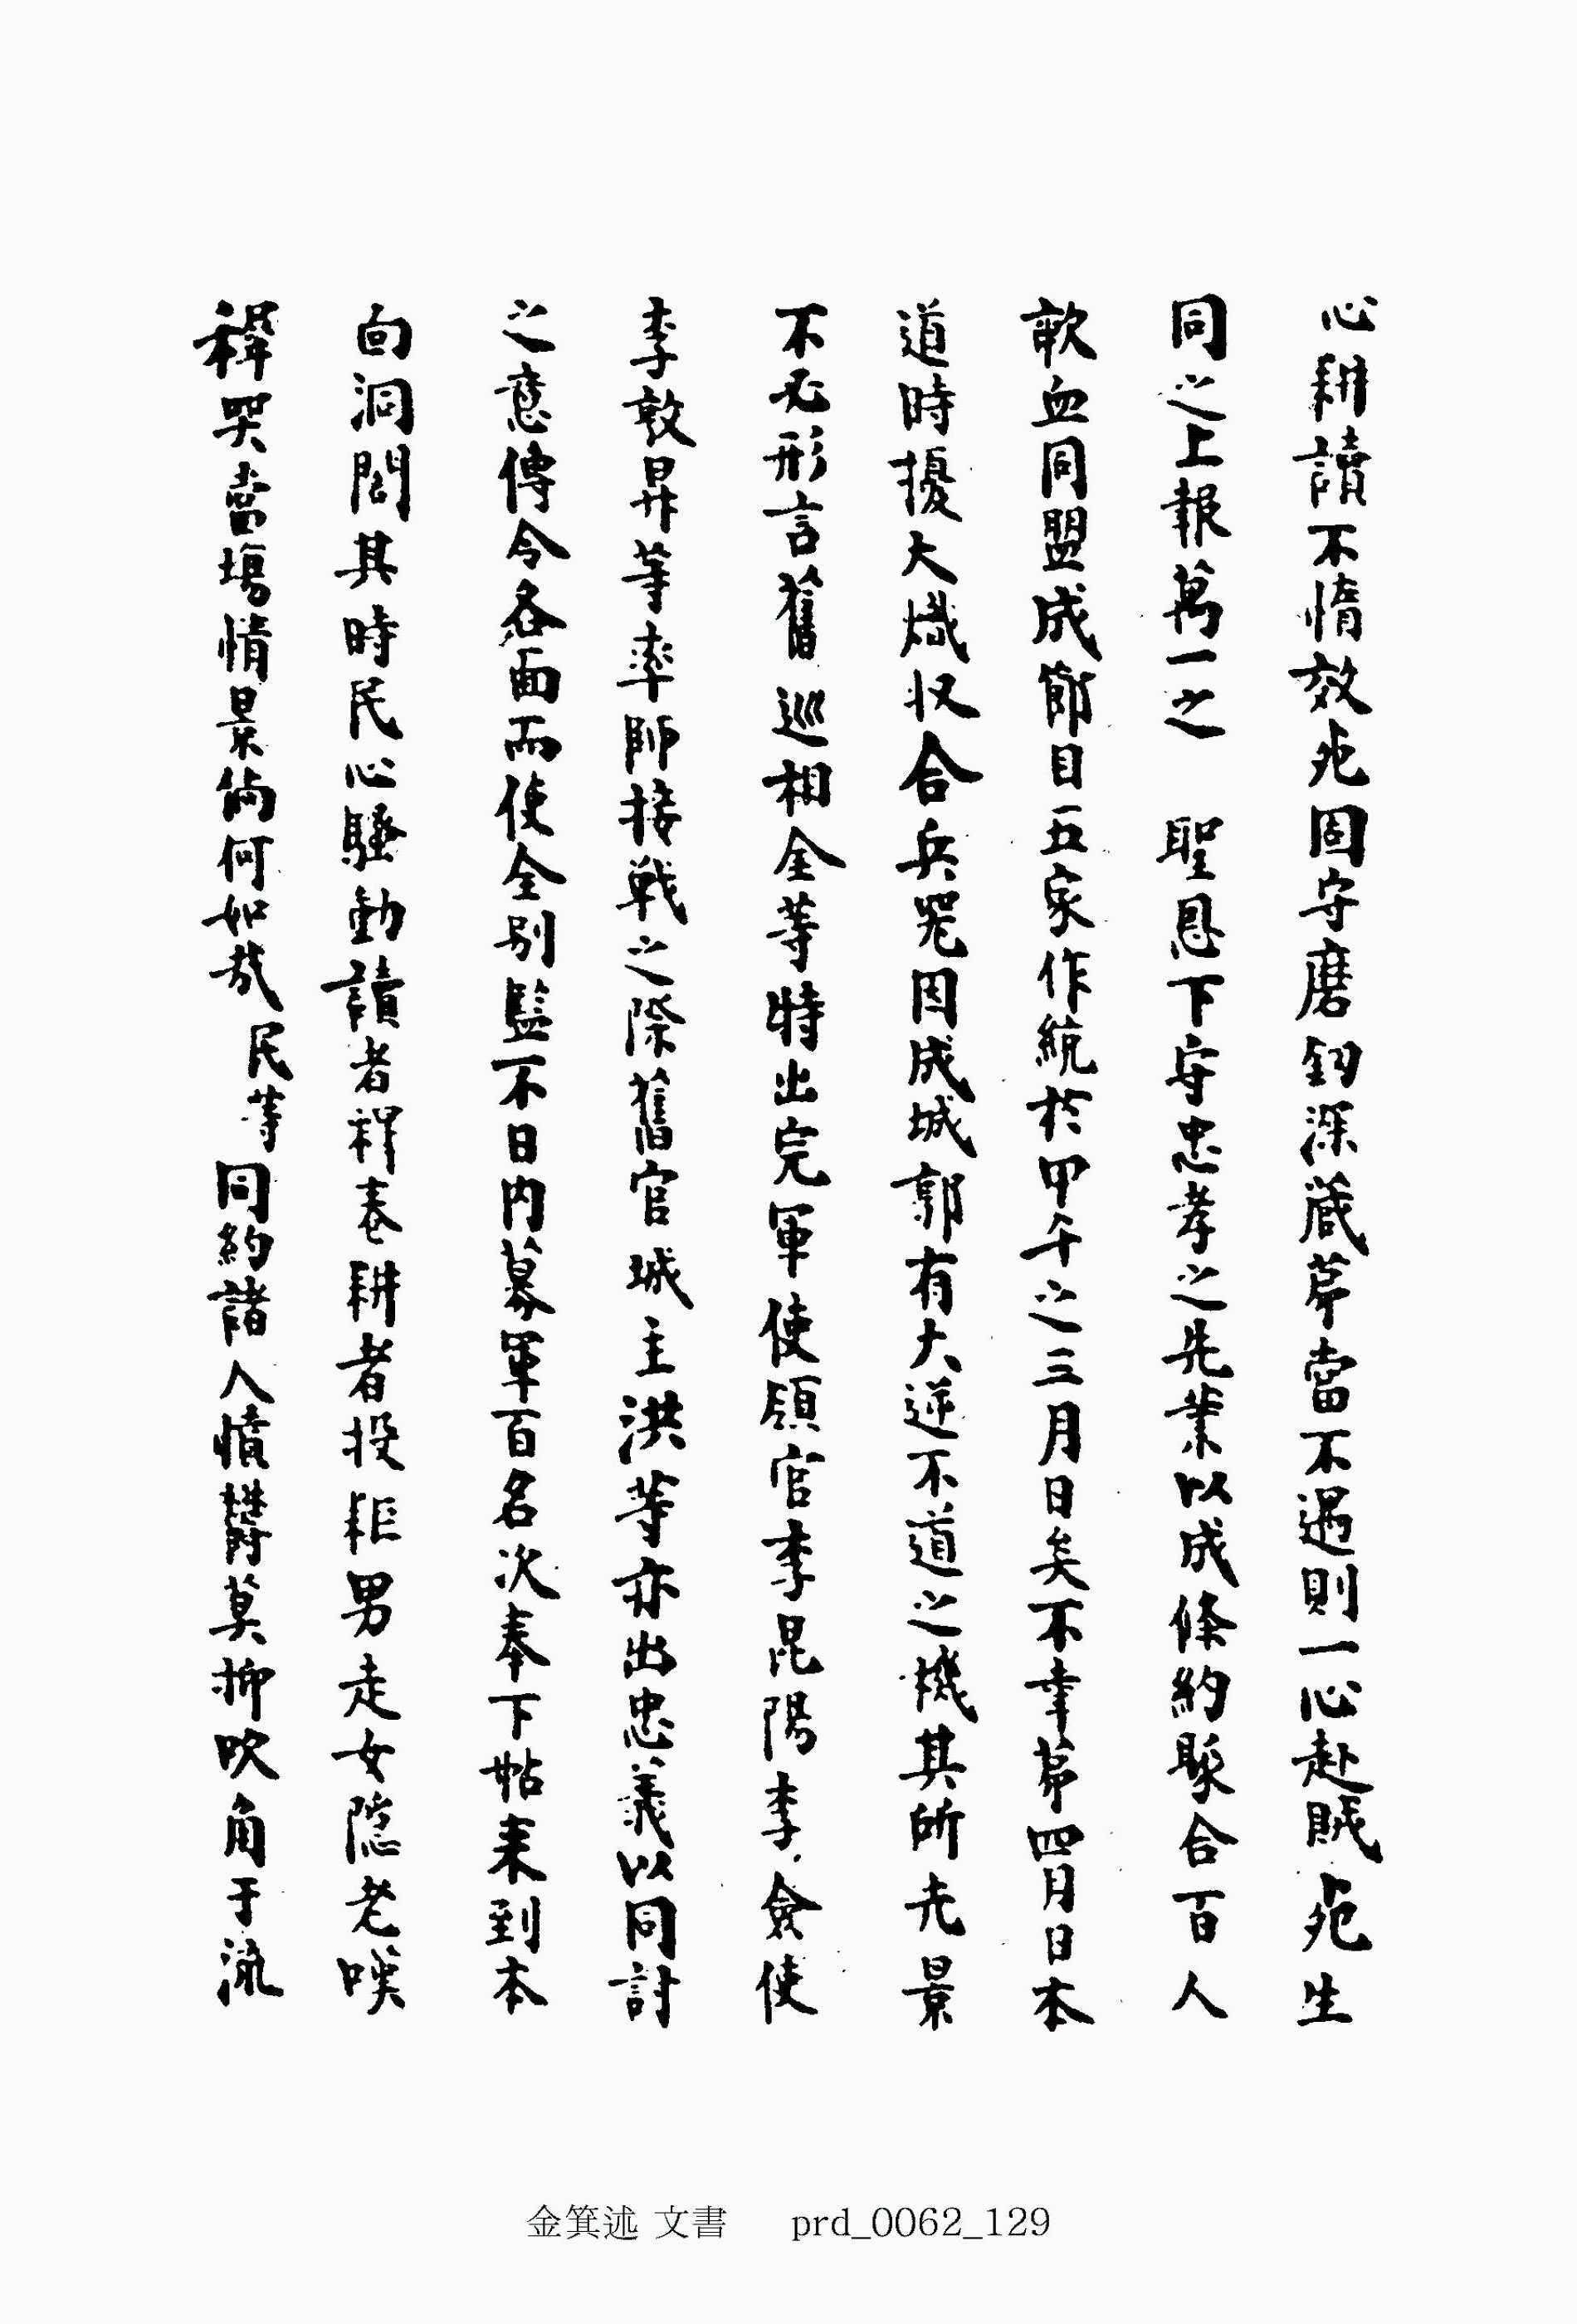 心耕讀不惰效死固守磨釰深藏第當不遇則一心赴賊死生
同之上報萬一之 聖恩下守忠孝之先業以成條約聚合百人
歃血同盟成節目五家作統於甲午之三月日矣不幸第四月日本
道時擾大熾收合兵器因成城郭有大逆不道之機其所光景
不必形言舊 巡相金等特出完軍使領官李昆陽李僉使
李敦昇等率師接戰之際舊官城主洪等亦出忠義以同討
之意傳令各面而使全別監不日內募軍百名次奉下帖来到本
面洞閭其時民心騷動讀者釋卷耕者投耟男走女隱老嘆
穉哭當場情景尙何如哉民等同約諸人憤欝莫抑吹角于流
金箕述 文書 prd_0062_129